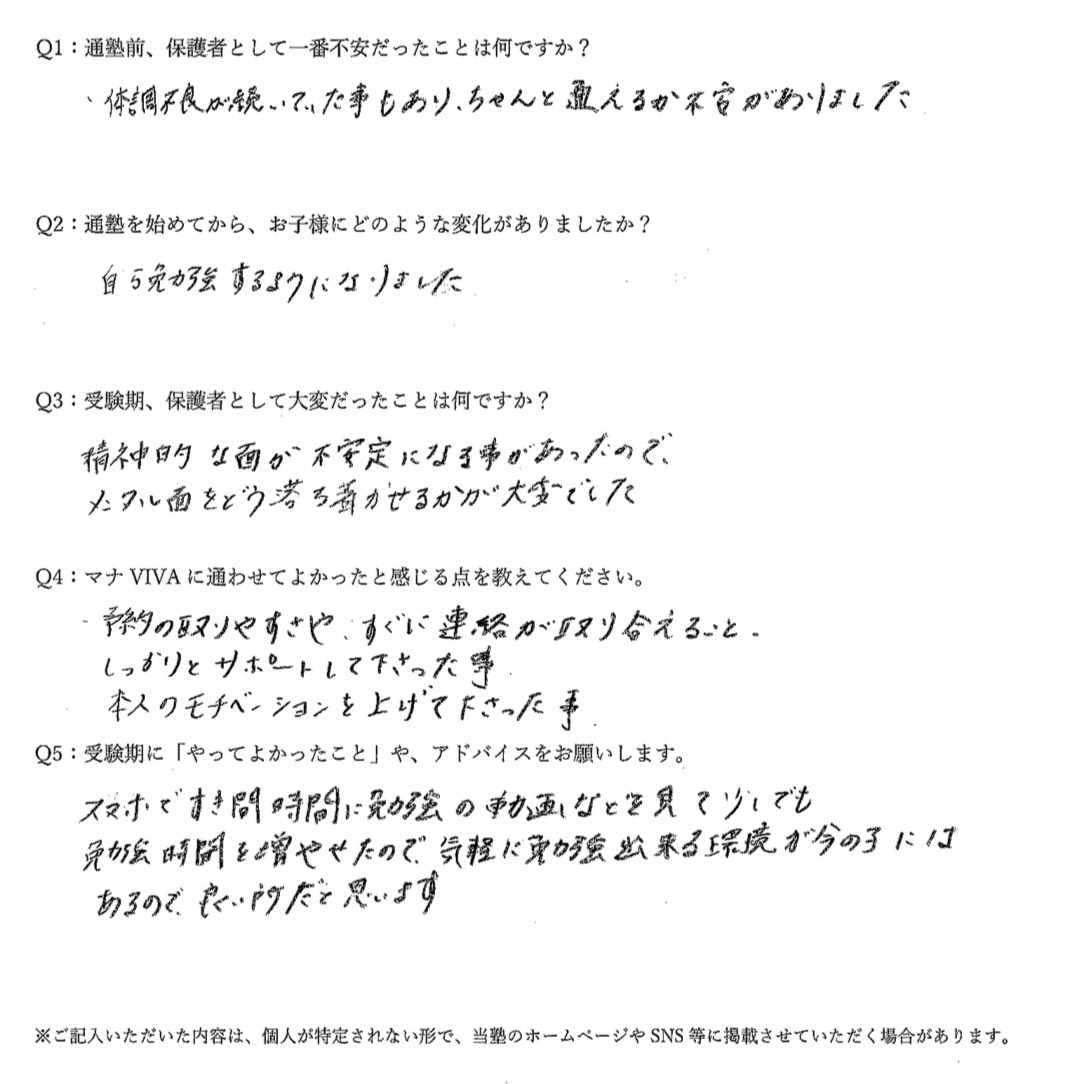 Q1：通塾前、保護者として一番不安だったことは何ですか？
、体調不良が続いていた事もあり、ちゃんと通えるか不安がありました
Q2：通塾を始めてから、お子様にどのような変化がありましたか？
自ら勉強するようになりました
Q3：受験期、保護者として大変だったことは何ですか？
精神的な面が不安定になる事があったので、
メンタル面をどう落ち着かせるかが大変でした
Q4：マナVIVAに通わせてよかったと感じる点を教えてください。
・予約の取りやすさや、すぐに連絡が取り合えること。
しっかりとサポートして下さった事
本人のモチベーションを上げて下さった事.
Q5：受験期に「やってよかったこと」や、アドバイスをお願いします。
スマホですき間時間に勉強の動画などを見て少しでも
勉強時間を増やせたので、気軽に勉強出来る環境が今の子には
あるので、良い所だと思います
※ご記入いただいた内容は、個人が特定されない形で、当塾のホームページやSNS等に掲載させていただく場合があります。